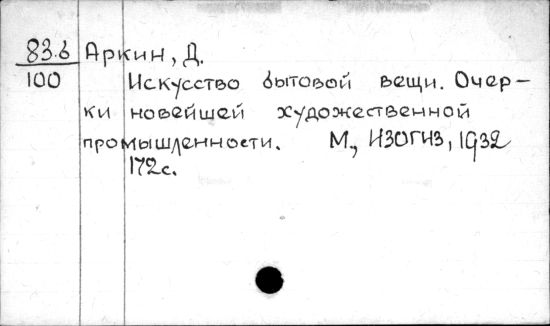 83.6 Аркин, Д.
100 Искусство бытовой вещи. Очер-
ки новейшей художественной
промышленности. М., ИЗОГИЗ, 1932
172с.